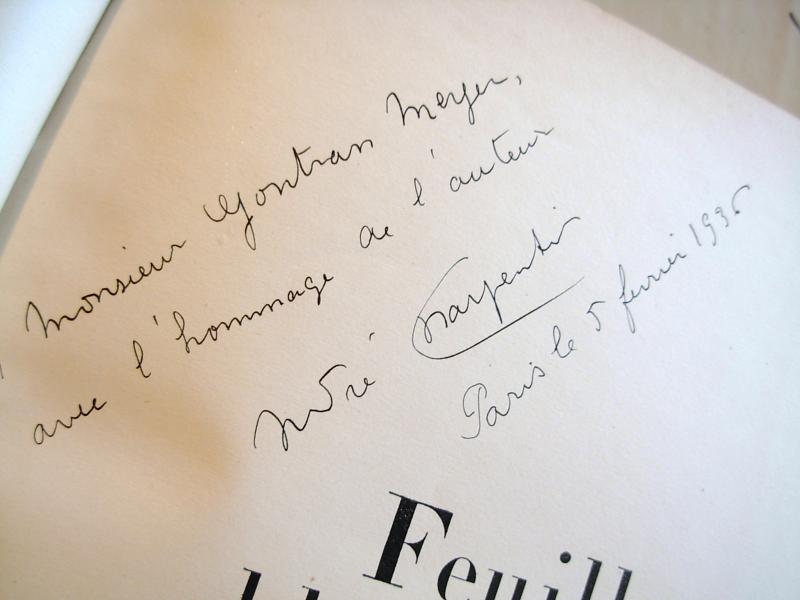 Monsieur Gontran Meyer,
avec l'hommage de l'auteur
André Charpentier
Paris le 5 février 1936
Feuill